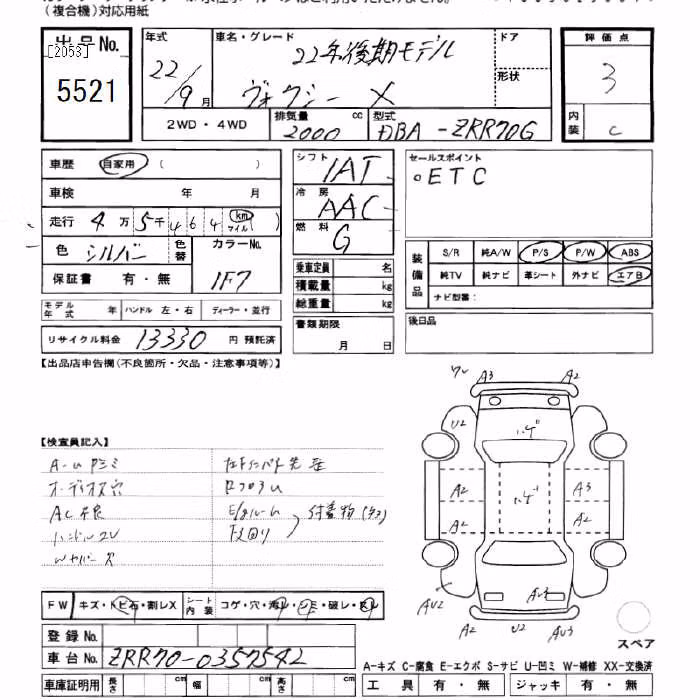 (複合機)対応用紙
出品No.
[2053]
5521
年式
22/9月
車名・グレード
22年後期モデル
ヴォクシー X
ドア
形状
2WD・4WD
排気量 cc
2000
型式
DBA-ZRR70G
評価点
3
内装
C
車歴 自家用 ( )
車検 年 月
走行 4万5千464 km マイル
色 シルバー 色替
カラーNo.
1F7
保証書 有・無
モデル年式 年 ハンドル 左・右 ディーラー・並行
リサイクル料金 13330 円 預託済
シフト
IAT
冷房
AAC
燃料
G
乗車定員 名
積載量 kg
総重量 kg
書類期限
月 日
セールスポイント
○ETC
装備品
S/R 純A/W P/S P/W ABS
純TV 純ナビ 革シート 外ナビ エアB
ナビ型番:
後日品
【出品店申告欄(不良箇所・欠品・注意事項等)】
【検査員記入】
オーディオス穴
AC不良
ハンドルスレ
下回り
付着物
A3
A2
U2
ハゲ
A2
ハゲ
A3
A2
A2
AU2
AU3
A2
U2
AU3
スペア
FW キズ・トビ石・割レX
シート内装 コゲ・穴・汚レ・シミ・破レ・スレ
登録No.
車台No. ZRR70-0357542
車庫証明用 長さ cm 幅 cm 高さ cm
A-キズ C-腐食 E-エクボ S-サビ U-凹ミ W-補修 XX-交換済
工具 有・無 ジャッキ 有・無